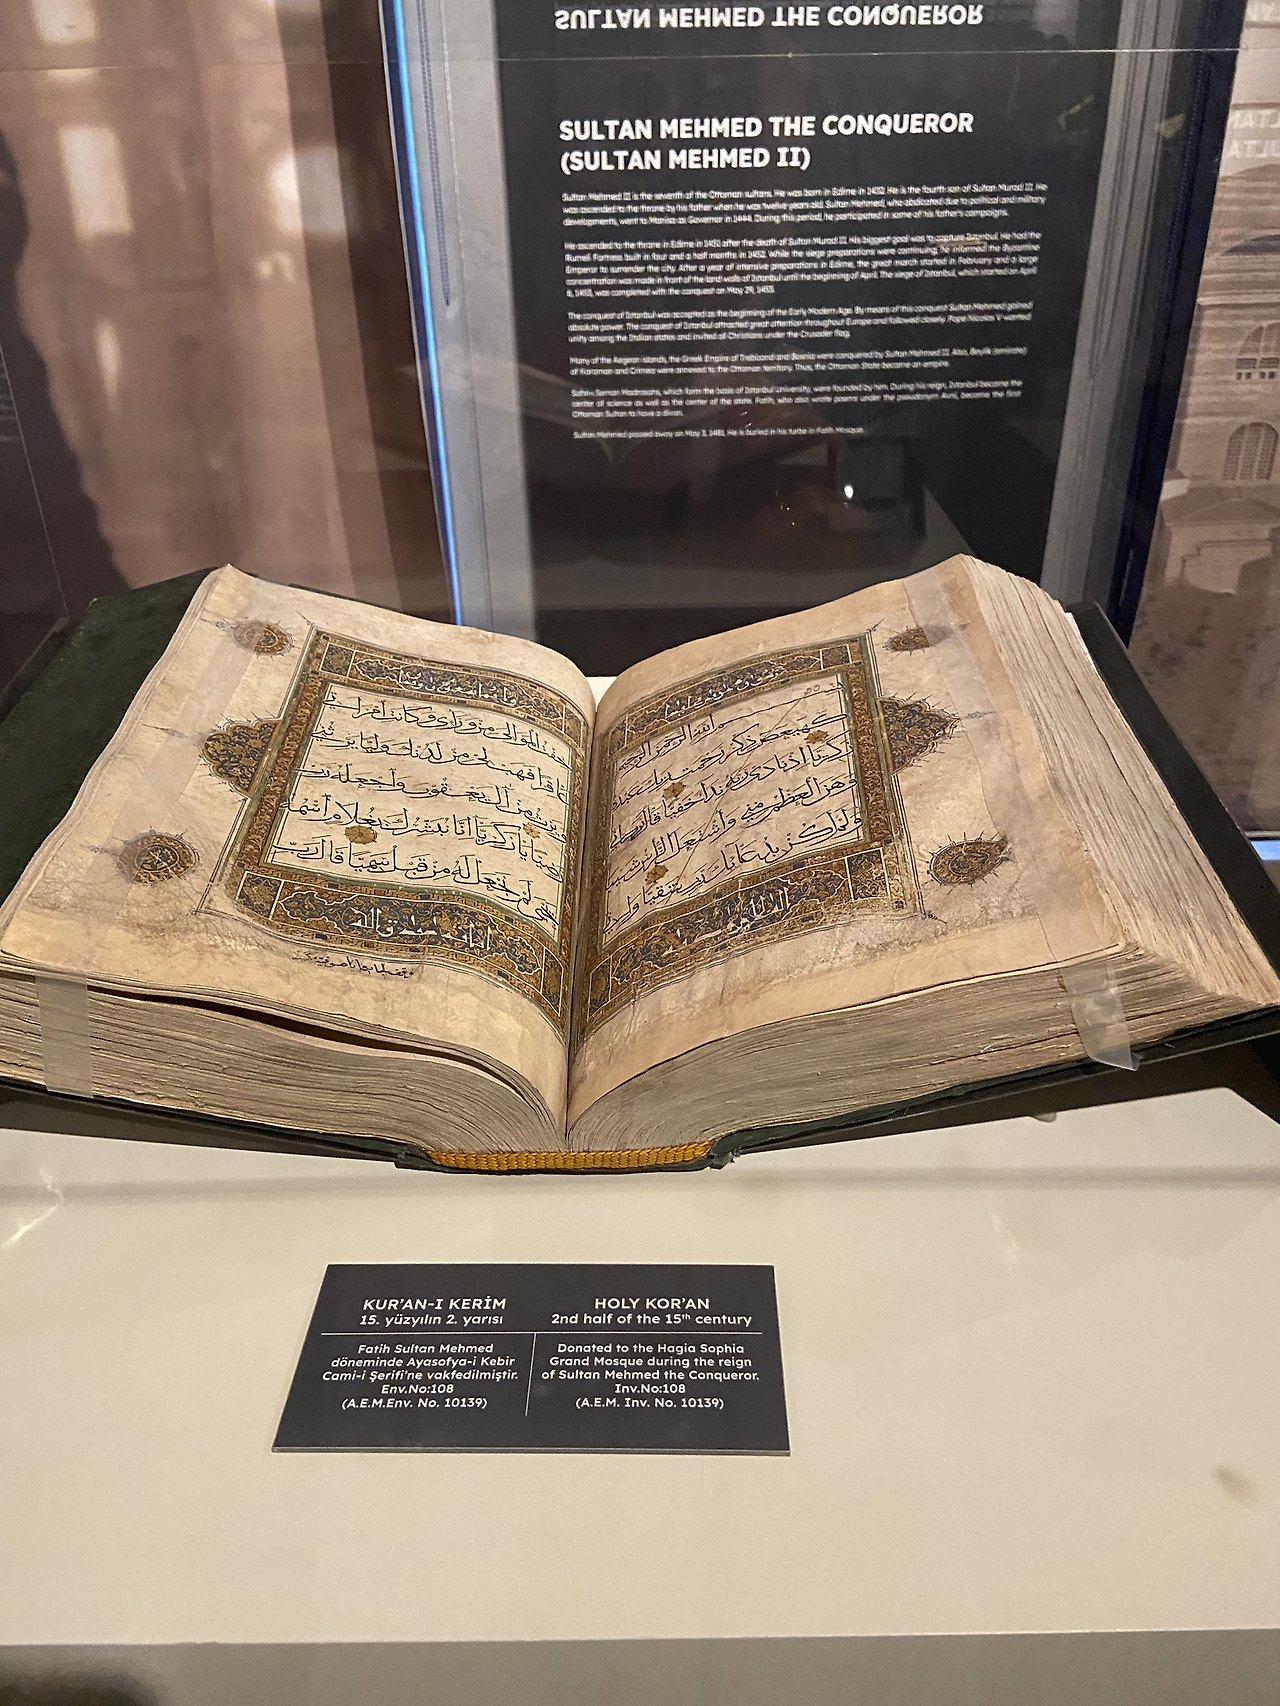 SULTAN MEHMED THE CONQUEROR
SULTAN MEHMED THE CONQUEROR
(SULTAN MEHMED II)
Sultan Mehmed II is the seventh of the Ottoman sultans. He was born in Edirne in 1432. He is the fourth son of Sultan Murad II. He
was ascended to the throne by his father when he was twelve years old. Sultan Mehmed, who abdicated due to political and military
developments, went to Manisa as Governor in 1444. During this period, he participated in some of his father's campaigns.
He ascended to the throne in Edirne in 1451 after the death of Sultan Murad II. His biggest goal was to capture Istanbul. He had the
Rumeli Fortress built in four and a half months in 1452. While the siege preparations were continuing, he informed the Byzantine
Emperor to surrender the city. After a year of intensive preparations in Edirne, the great march started in February and a large
concentration was made in front of the land walls of Istanbul until the beginning of April. The siege of Istanbul, which started on April
6, 1453, was completed with the conquest on May 29, 1453.
The conquest of Istanbul was accepted as the beginning of the Early Modern Age. By means of this conquest Sultan Mehmed gained
absolute power. The conquest of Istanbul attracted great attention throughout Europe and followed closely. Pope Nicolas V wanted
unity among the Italian states and invited all Christians under the Crusader flag.
Many of the Aegean islands, the Greek Empire of Trebizond and Bosnia were conquered by Sultan Mehmed II. Also, Beylik (emirate)
of Karaman and Crimea were annexed to the Ottoman territory. Thus, the Ottoman State became an empire.
Sahn-ı Seman Madrasahs, which form the basis of Istanbul University, were founded by him. During his reign, Istanbul became the
center of science as well as the center of the state. Fatih, who also wrote poems under the pseudonym Avni, became the first
Ottoman Sultan to have a divan.
Sultan Mehmed passed away on May 3, 1481. He is buried in his turbe in Fatih Mosque.
بسم الله الرحمن الرحيم
كهيعص ذكر رحمت ربك عبده
زكريا اذ نادى ربه نداء خفيا قال رب انى
وهن العظم منى واشتعل الراس شيبا
ولم اكن بدعائك رب شقيا وانى
خفت الموالى من ورائى وكانت امراتى
عاقرا فهب لى من لدنك وليا يرثنى
ويرث من ال يعقوب واجعله رب
رضيا يا زكريا انا نبشرك بغلام اسمه
يحيى لم نجعل له من قبل سميا قال رب
KUR'AN-I KERİM
15. yüzyılın 2. yarısı
Fatih Sultan Mehmed
döneminde Ayasofya-i Kebir
Cami-i Şerifi'ne vakfedilmiştir.
Env.No:108
(A.E.M.Env. No. 10139)
HOLY KOR'AN
2nd half of the 15th century
Donated to the Hagia Sophia
Grand Mosque during the reign
of Sultan Mehmed the Conqueror.
Inv.No:108
(A.E.M. Inv. No. 10139)